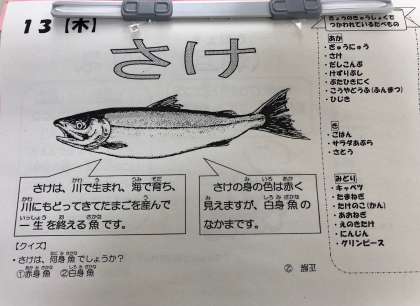 13【木】
さけ
さけは、川で生まれ、海で育ち、
川にもどってきてたまごを産んで
一生を終える魚です。
さけの身の色は赤く
見えますが、白身魚の
なかまです。
【クイズ】
・さけは、何身魚でしょうか？
①赤身魚　②白身魚
きょうのきゅうしょくで
つかわれているたべもの
あか
・ぎゅうにゅう
・さけ
・だしこんぶ
・けずりぶし
・ぶたひきにく
・こうやどうふ(ふんまつ)
・ひじき
き
・ごはん
・サラダあぶら
・さとう
みどり
・キャベツ
・たまねぎ
・たけのこ(かん)
・あおねぎ
・えのきたけ
・にんじん
・グリンピース